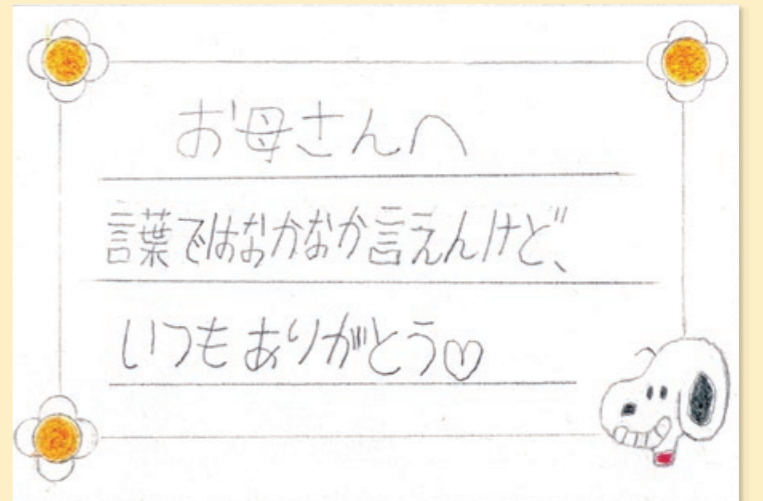 お母さんへ
言葉ではなかなか言えんけど、
いつもありがとう♡